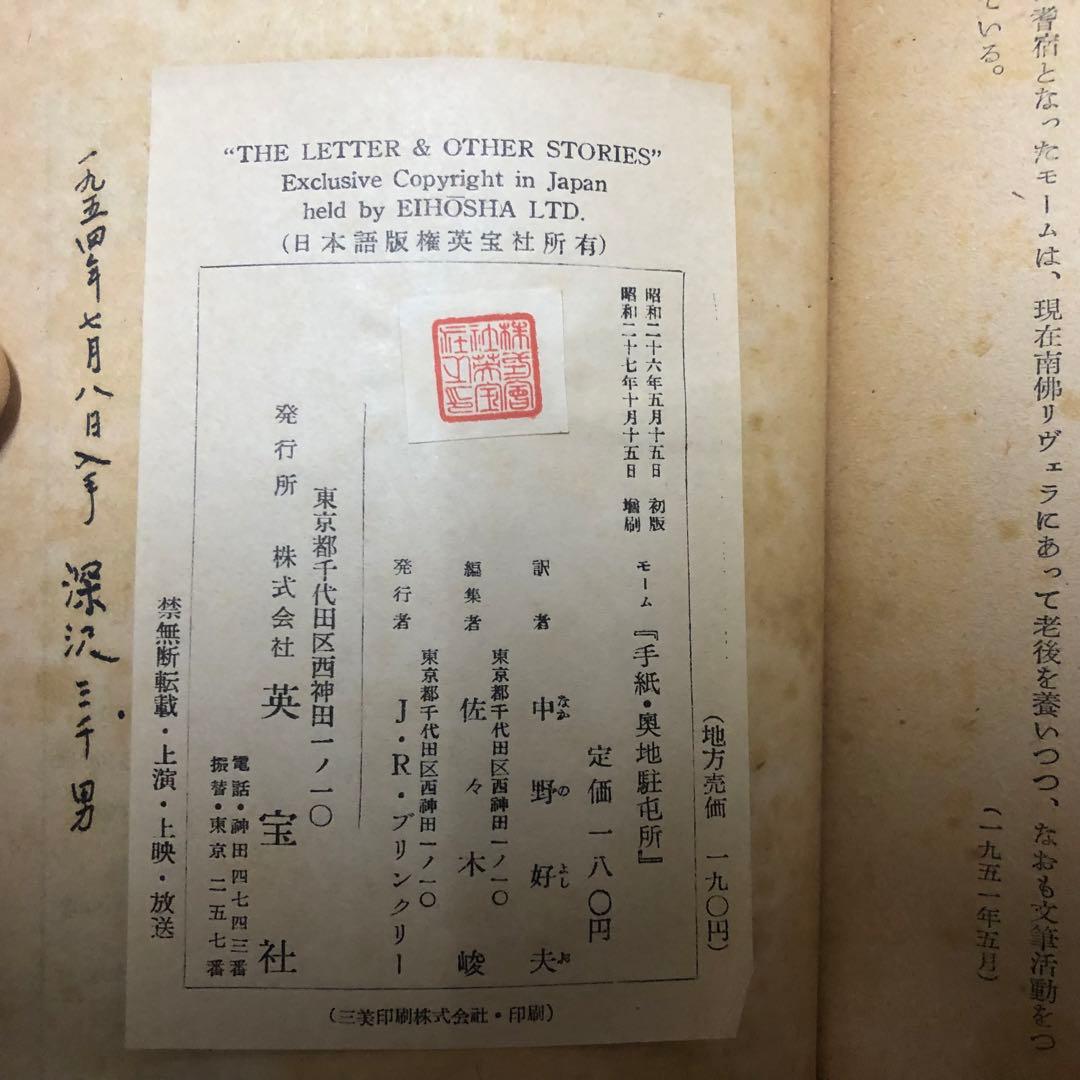 耆宿となったモームは、現在南佛リヴェラにあって老後を養いつつ、なおも文筆活動をつ
ている。
(一九五一年五月)
“THE LETTER & OTHER STORIES”
Exclusive Copyright in Japan
held by EIHŌSHA LTD.
(日本語版権英宝社所有)
(地方売価 一九〇円)
昭和二十六年五月十五日 初版
昭和二十七年十月十五日 増刷
モーム『手紙・奥地駐屯所』
定価一八〇円
訳者 中野好夫
なかのよしお
東京都千代田区西神田一ノ一〇
編集者 佐々木峻
東京都千代田区西神田一ノ一〇
発行者 J・R・ブリンクリー
株式會
社英宝
社之印
東京都千代田区西神田一ノ一〇
発行所 株式会社 英宝社
電話・神田四七四三番
振替・東京二五七番
禁無断転載・上演・上映・放送
(三美印刷株式会社・印刷)
一九五四年七月八日入手 深沢三千男